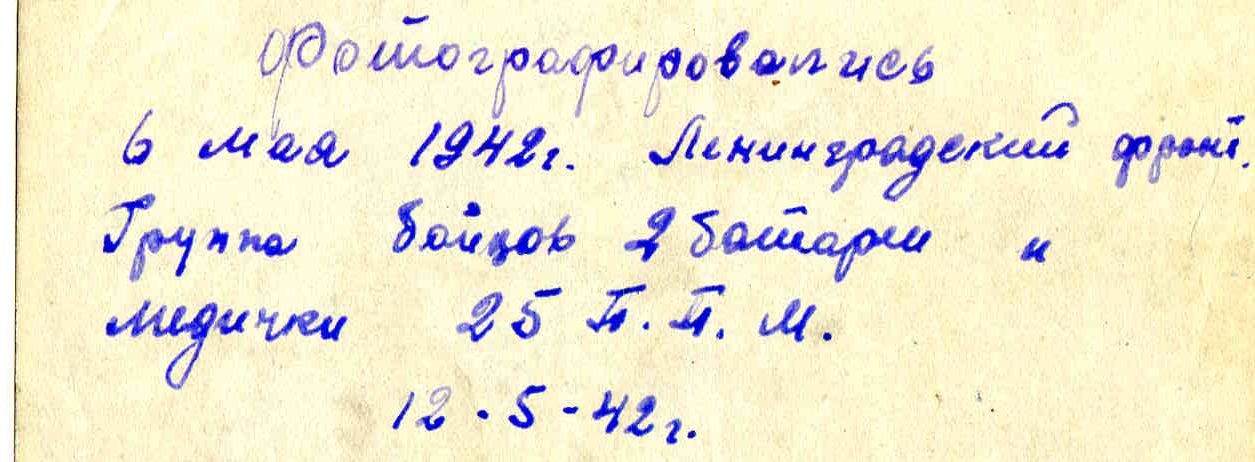 Фотографировались
6 мая 1942г. Ленинградский фронт.
Группа бойцов 2 батареи и
медички 25 П.П.М.
12-5-42г.